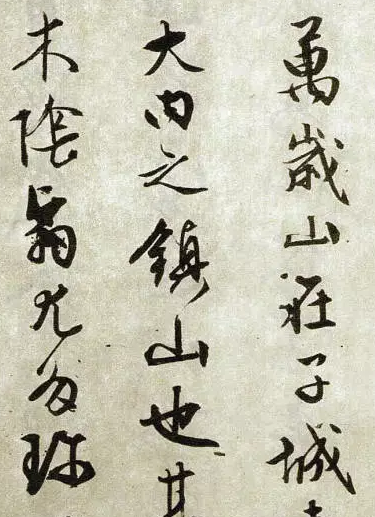 萬歲山在子城
大內之鎮山也其
木陰翳尤多珎